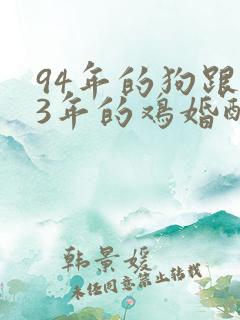 94年的狗跟
3年的鸡婚配
韩景媛
未经同意禁止转载